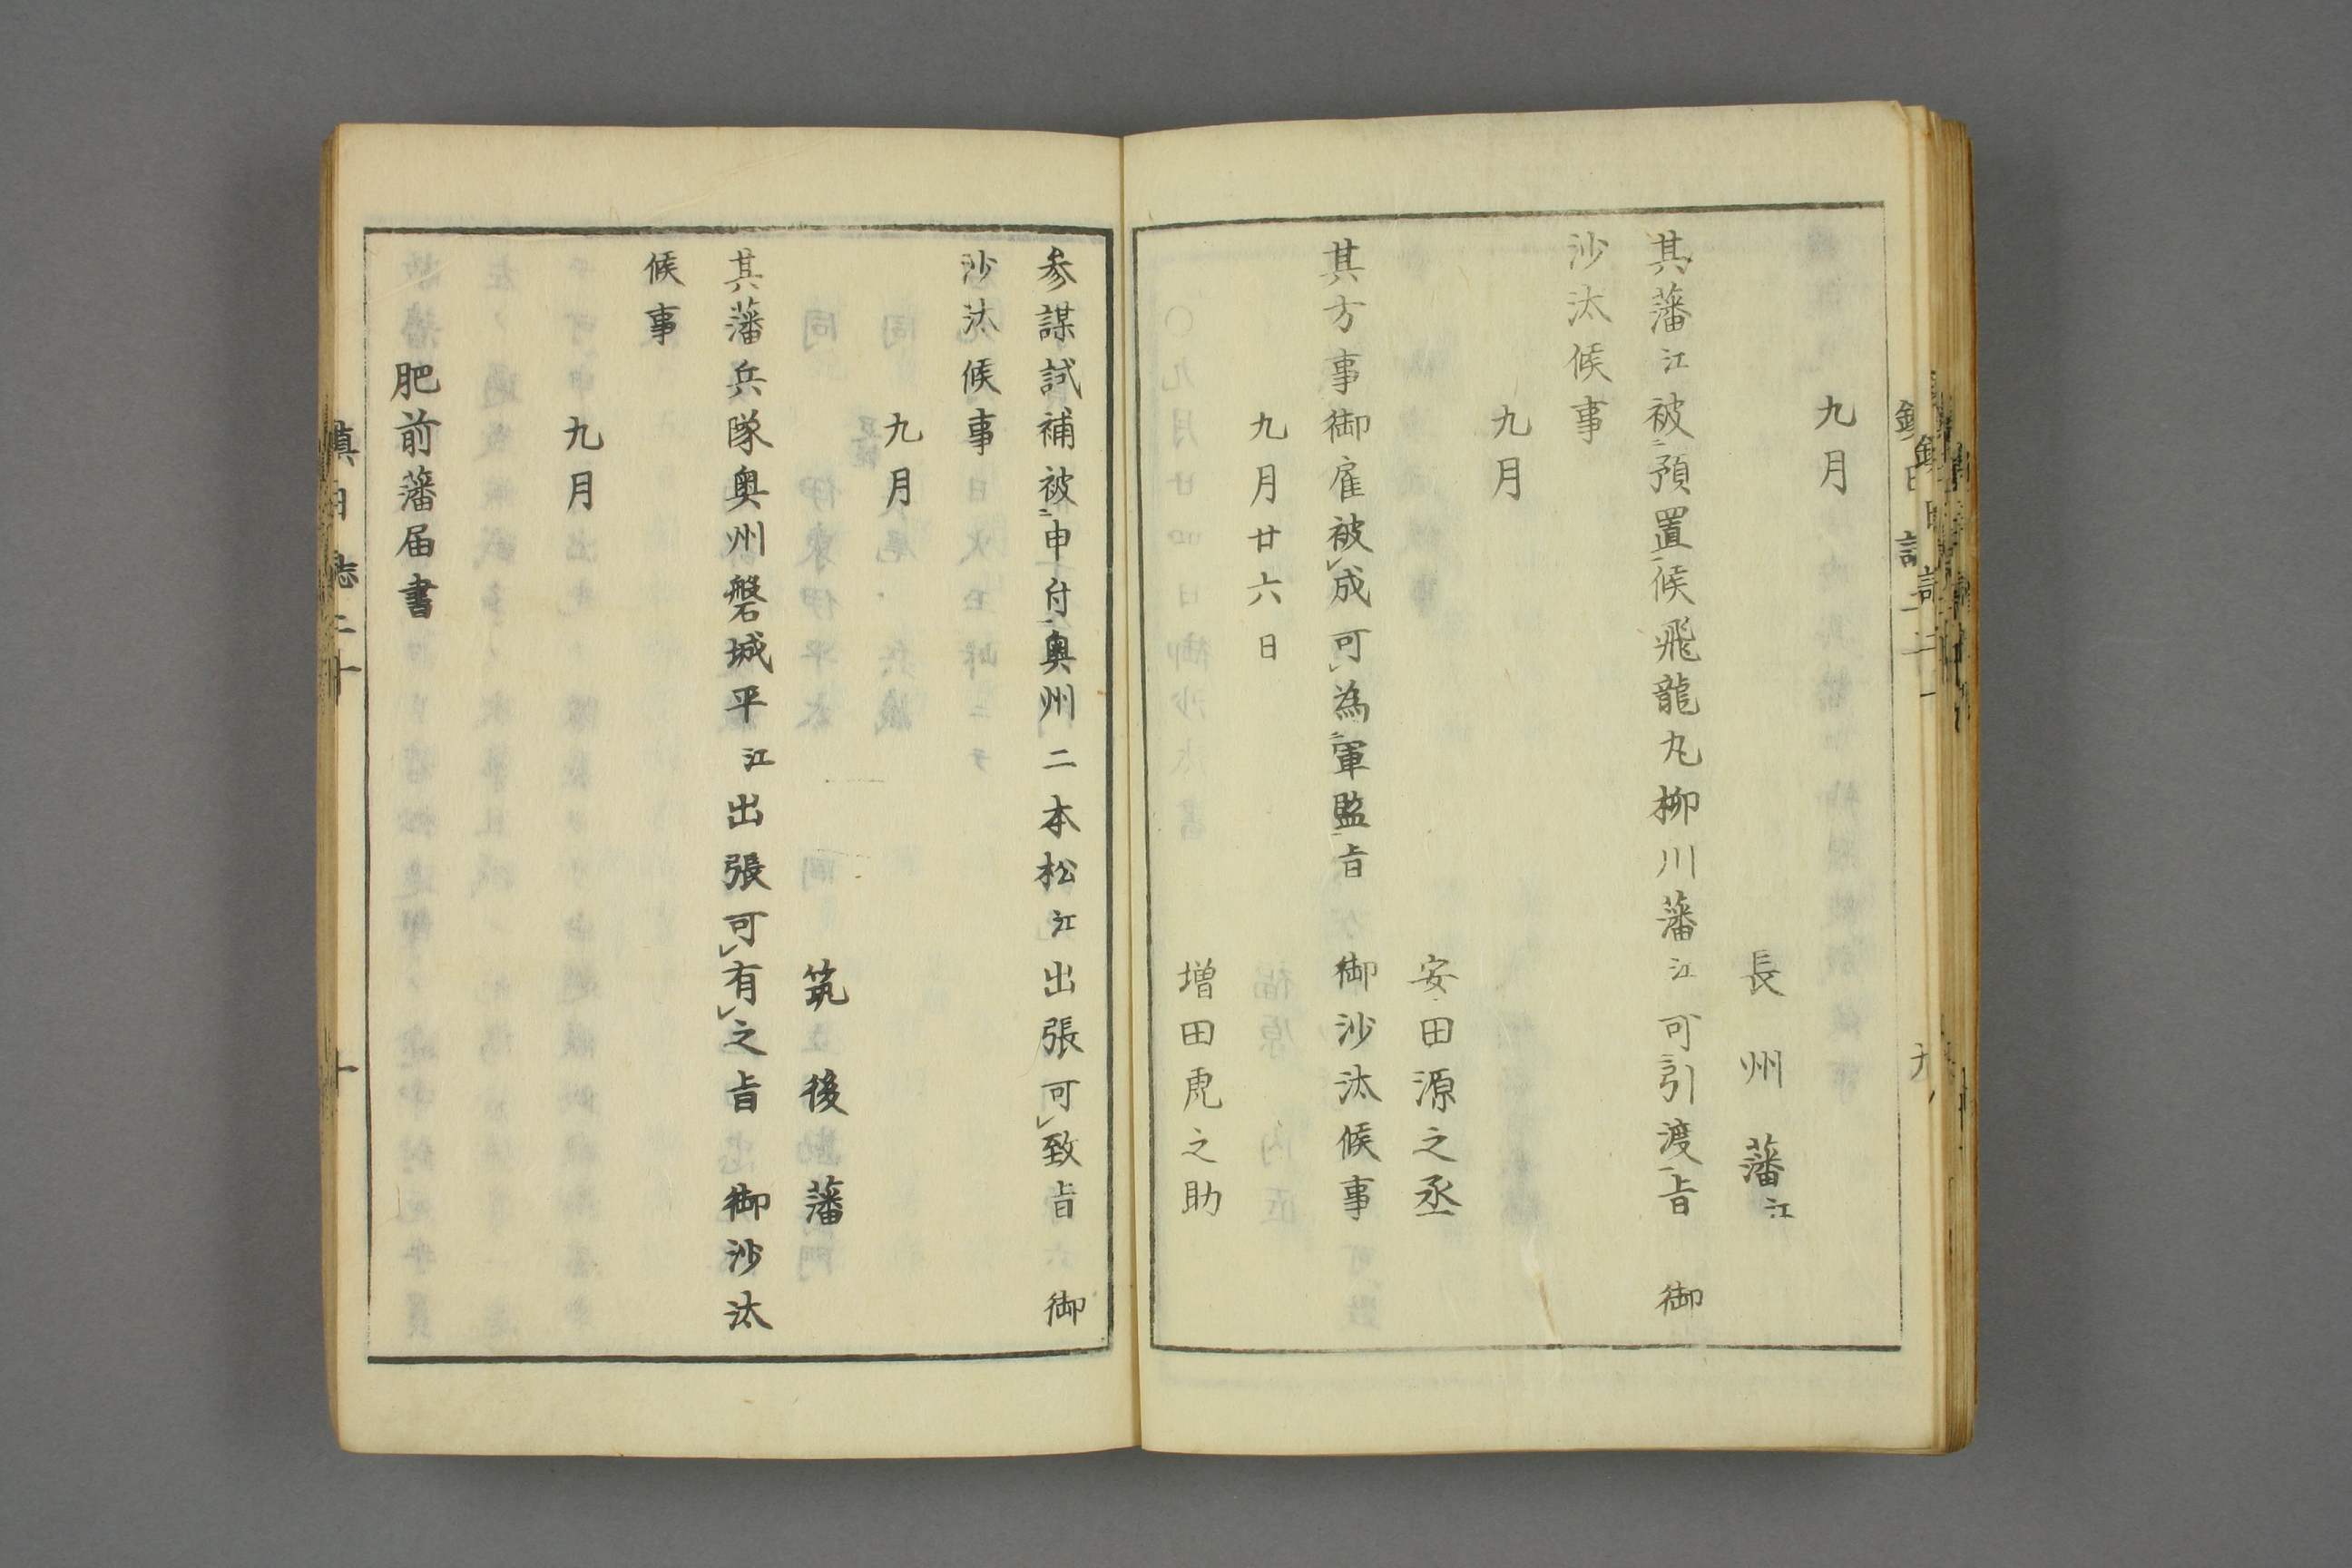 九月
長州藩江
其藩江被ニ預置一候飛龍丸柳川藩江可引渡一旨　御
沙汰候事
九月
安田源之丞
其方事御雇被レ成可レ為ニ軍監一旨　御沙汰候事
九月廿六日
増田虎之助
参謀試補被ニ申付一奥州二本松江出張可レ致旨　御
沙汰候事
九月
筑後藩
其藩兵隊奥州磐城平江出張可レ有レ之旨御沙汰
候事
九月
肥前藩届書
鎮日誌二十
十